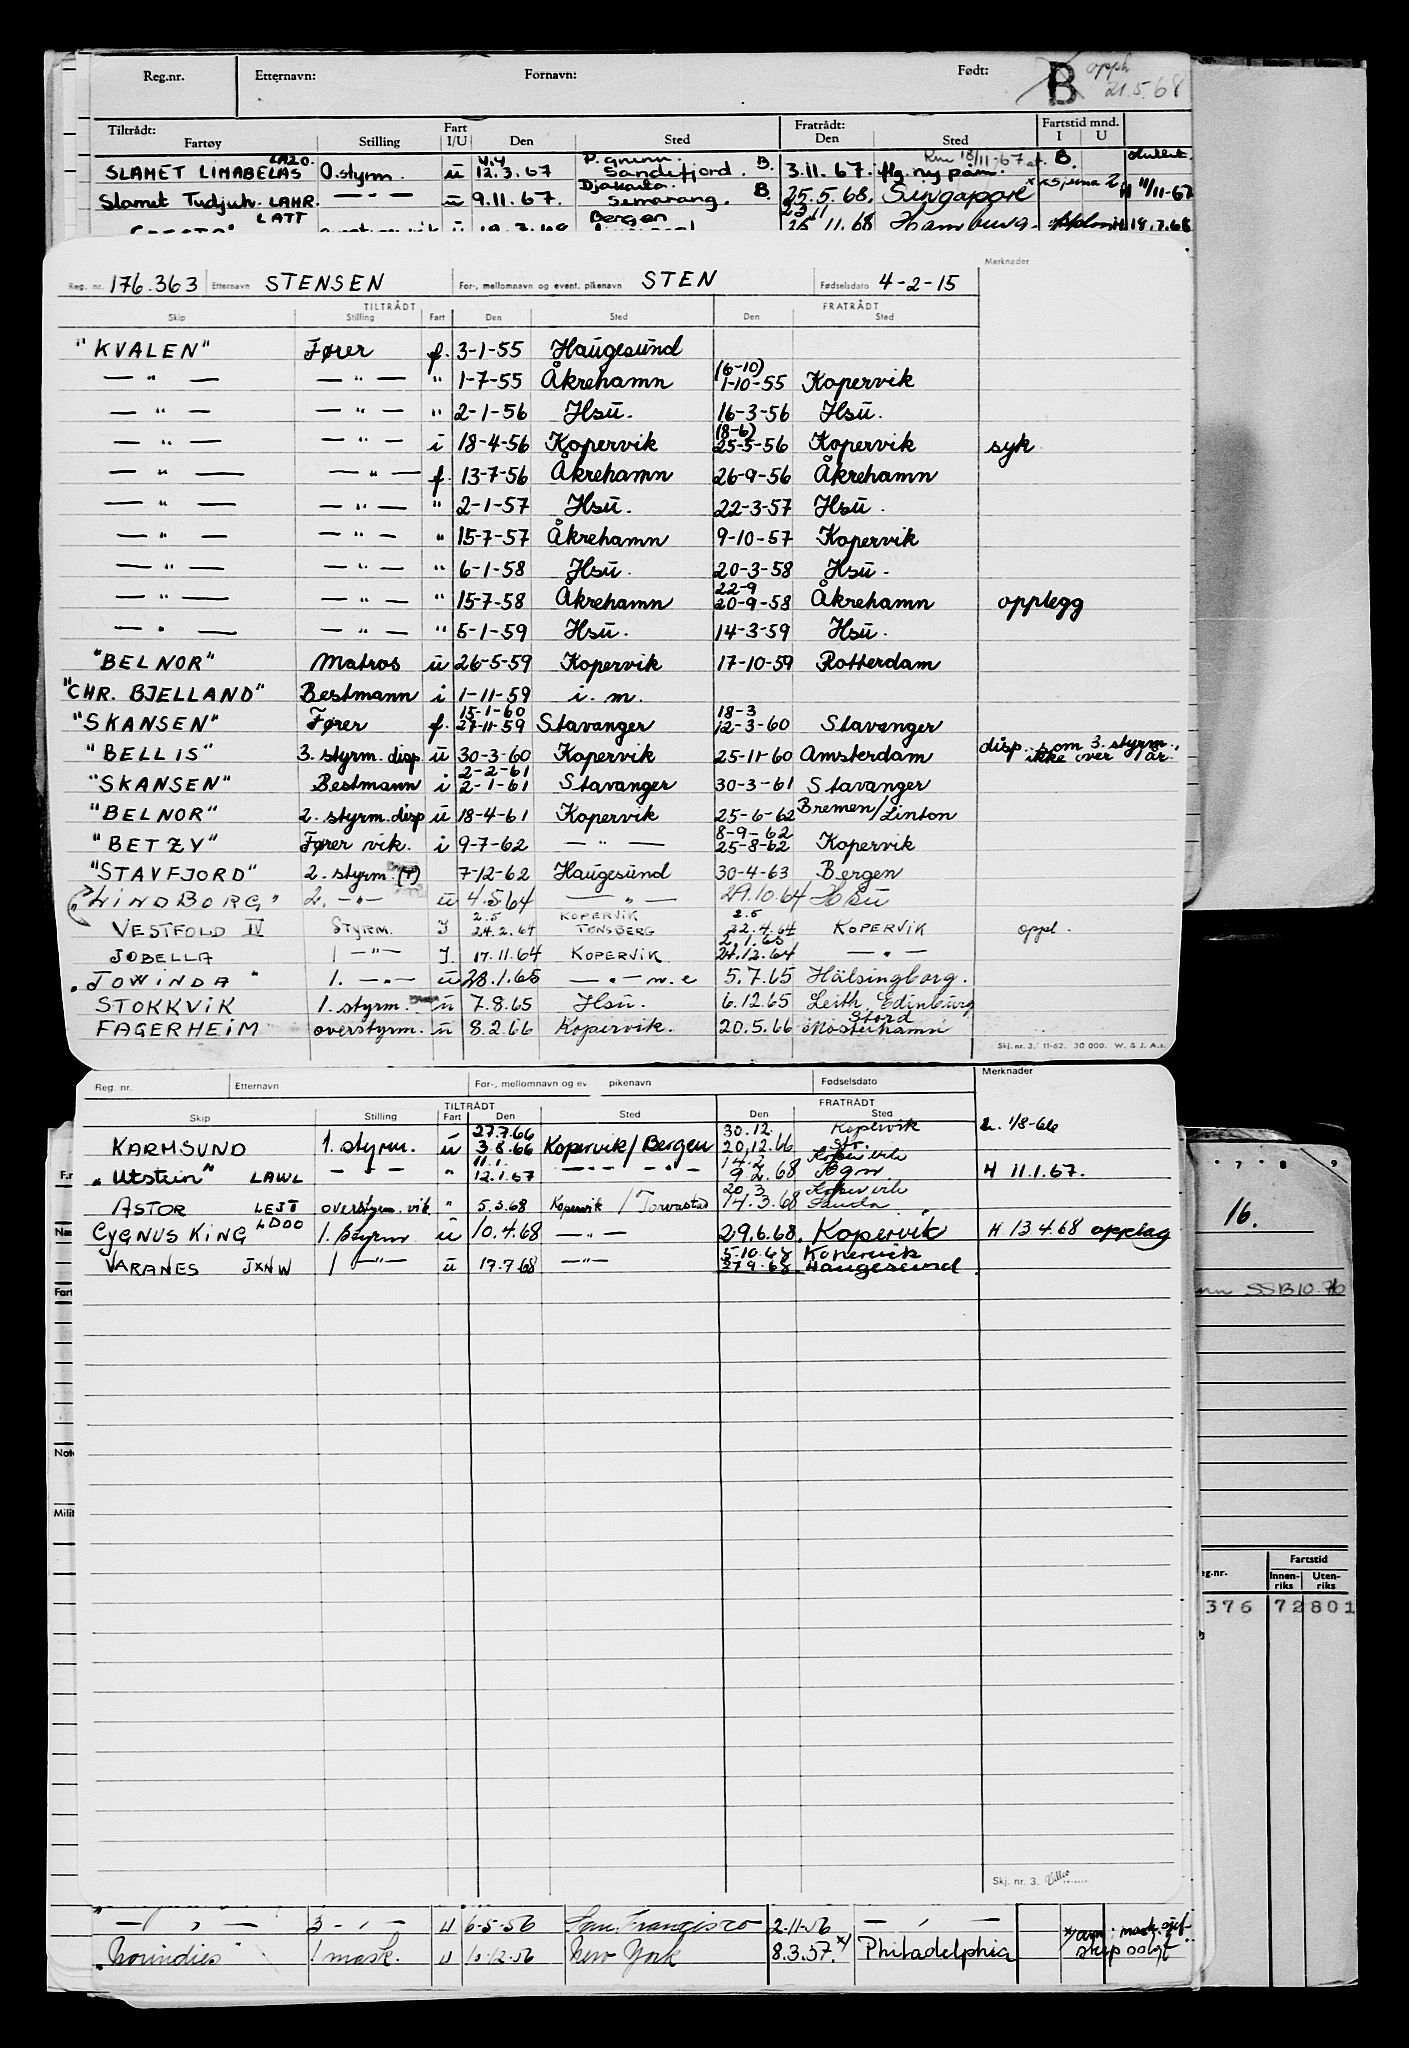 Reg.nr. Etternavn: Fornavn: Født: B opph 21.5.68
Tiltrådt: Fart Fratrådt: Fartstid mnd.
Fartøy Stilling I/U Den Sted Den Sted I U
SLAMET LIMABELAS LAZO. O.styrm. u 4.4 12.3.67 Sandefjord. B. 3.11.67. flg. ny påm. B.
Slamet Tudjuh. LAHR. — " — u 9.11.67. Djakarta. Semarang. B. 25.5.68. Singapore H 11/11-67
LATT Bergen 23 11 25 11.68 Hamburg. H 19.7.68
Merknader
Reg. nr. 176.363 Etternavn STENSEN For-, mellomnavn og event. pikenavn STEN Fødselsdato 4-2-15
TILTRÅDT FRATRÅDT
Skip Stilling Fart Den Sted Den Sted
"KVALEN" Fører f. 3-1-55 Haugesund
— " — — " — " 1-7-55 Åkrehamn (6-10) 1-10-55 Kopervik
— " — — " — " 2-1-56 Hsu. 16-3-56 Hsu.
— " — — " — i 18-4-56 Kopervik (8-6) 25-5-56 Kopervik syk
— " — — " — f. 13-7-56 Åkrehamn 26-9-56 Åkrehamn
— " — — " — " 2-1-57 Hsu. 22-3-57 Hsu.
— " — — " — " 15-7-57 Åkrehamn 9-10-57 Kopervik
— " — — " — " 6-1-58 Hsu. 20-3-58 Hsu.
— " — — " — " 15-7-58 Åkrehamn 22-9 20-9-58 Åkrehamn opplegg
— " — — " — " 5-1-59 Hsu. 14-3-59 Hsu.
"BELNOR" Matros u 26-5-59 Kopervik 17-10-59 Rotterdam
"CHR. BJELLAND" Bestmann i 1-11-59 i. m.
"SKANSEN" Fører f. 15-1-60 27-11-59 Stavanger 18-3 12-3-60 Stavanger
"BELLIS" 3. styrm. disp u 30-3-60 Kopervik 25-11-60 Amsterdam disp. som 3. styrm., ikke over 1 år.
"SKANSEN" Bestmann i 2-2-61 2-1-61 Stavanger 30-3-61 Stavanger
"BELNOR" 2. styrm. disp u 18-4-61 Kopervik 25-6-62 Bremen/Linton
"BETZY" Fører vik. i 9-7-62 — " — 8-9-62 25-8-62 Kopervik
"STAVFJORD" 2. styrm. 7-12-62 Haugesund 30-4-63 Bergen
"LINDBORG" 2. — " — u 4.5.64 — " — 29.10.64 Hsu
VESTFOLD IV STYRM. I 2.5 24.2.64 KOPERVIK TØNSBERG 2.5 22.4.64 KOPERVIK oppl.
JOBELLA 1 — " — I. 17.11.64 KOPERVIK 2.1.65 21.12.64 — " —
"JOWINDA" 1. — " — u 28.1.65 — " — 5.7.65 Hälsingborg.
STOKKVIK 1. styrm. u 7.8.65 Hsu. 6.12.65 Leith, Edinburg
FAGERHEIM overstyrm. u 8.2.66 Kopervik. 20.5.66 Stord Mosterhamn
Skj. nr. 3. 11-62. 30 000. W. & J. A.s.
Reg. nr. Etternavn For-, mellomnavn og ev pikenavn Fødselsdato Merknader
TILTRÅDT FRATRÅDT
Skip Stilling Fart Den Sted Den Sted
KARMSUND 1. styrm. u 27.7.66 3.8.66 Kopervik/Bergen 30.12. 20.12.66 Kopervik Str. 1/8-66
"Utstein" LAWL — " — " 11.1. 12.1.67 — " — — " — 14.2 9 2.68 Kopervik Bgn H 11.1.67.
ASTOR LEJT overstyrm. vik. " 5.3.68 Kopervik / Torvastad 20 3 14.3.68 Kopervik Sauda
CYGNUS KING LDOO 1. styrm u 10.4.68 — " — 29.6.68. Kopervik H 13 4.68 opplag
VARANES JXNW 1 — " — u 17.7.68 — " — 5.10.68 Kopervik 27.9.68 Haugesund.
Skj. nr. 3.
— " — 3 — " — u 6-5-56 San Francisco 2-11-56 — " —
"Norindies" 1 mask. u 10-12-56 New York 8.3.57. x) Philadelphia skip solgt
F.n
Na
Fart
Not
Milit
7 8 9
16.
SSB10.
eg.nr. Fartstid
Innen-riks Uten-riks
376 72 801